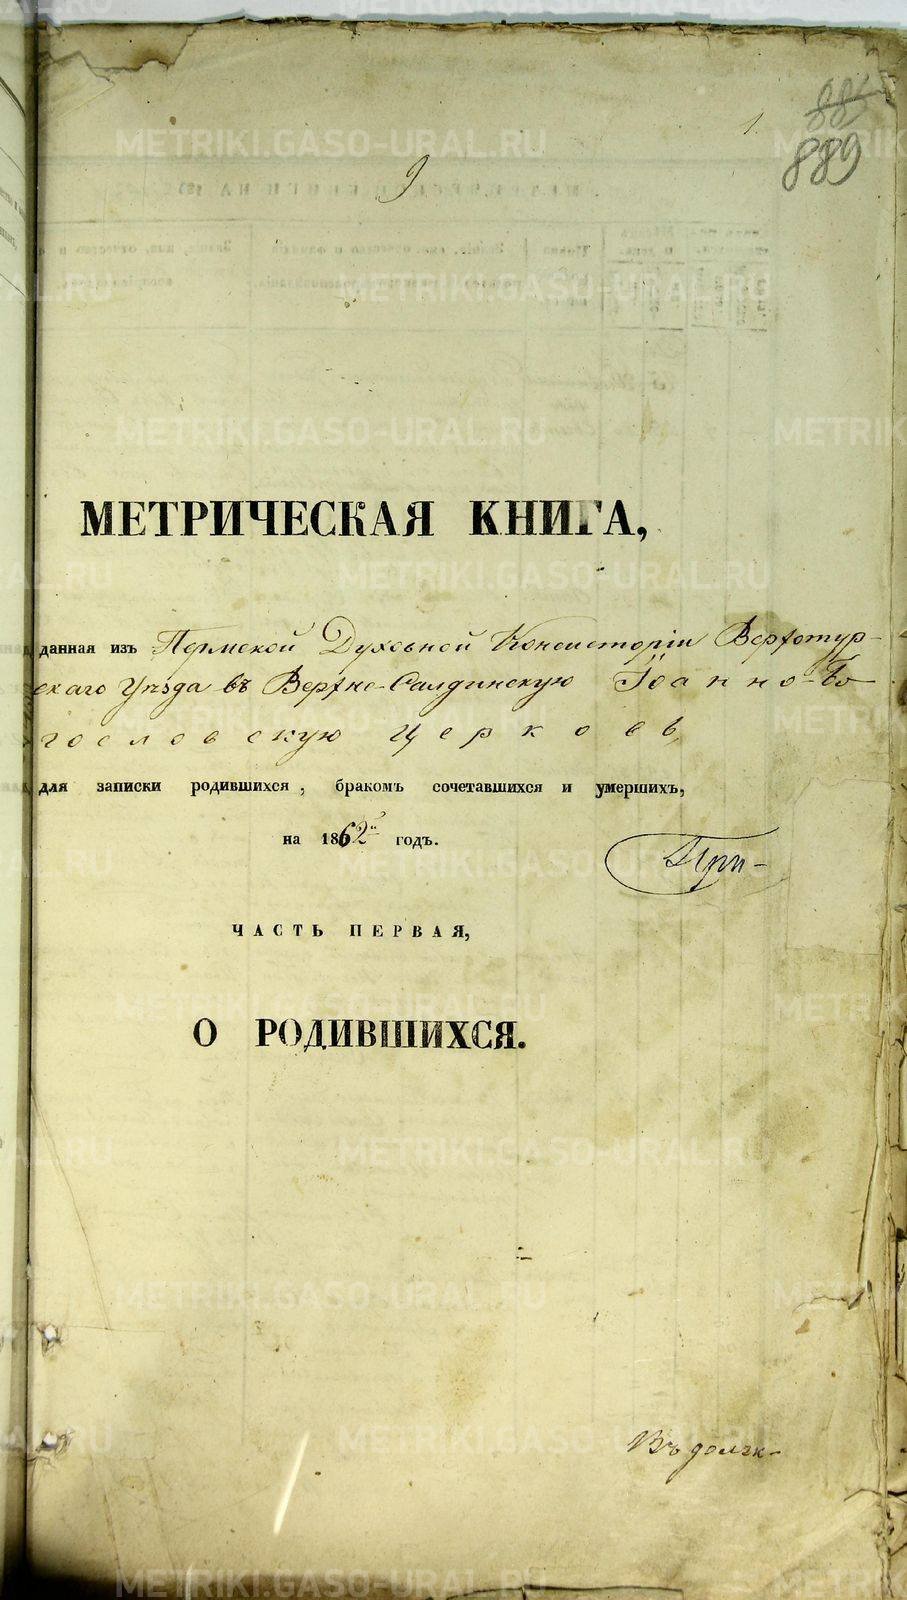 1.
885
889
9
МЕТРИЧЕСКАЯ КНИГА,
данная изъ Пермской Духовной Консисторіи Верхотур-
скаго Уѣзда въ Верхне-Салдинскую Іоанно-Бо-
гословскую церковь,
для записки родившихся, бракомъ сочетавшихся и умершихъ,
на 1862й годъ.
ЧАСТЬ ПЕРВАЯ,
О РОДИВШИХСЯ.
METRIKI.GASO-URAL.RU